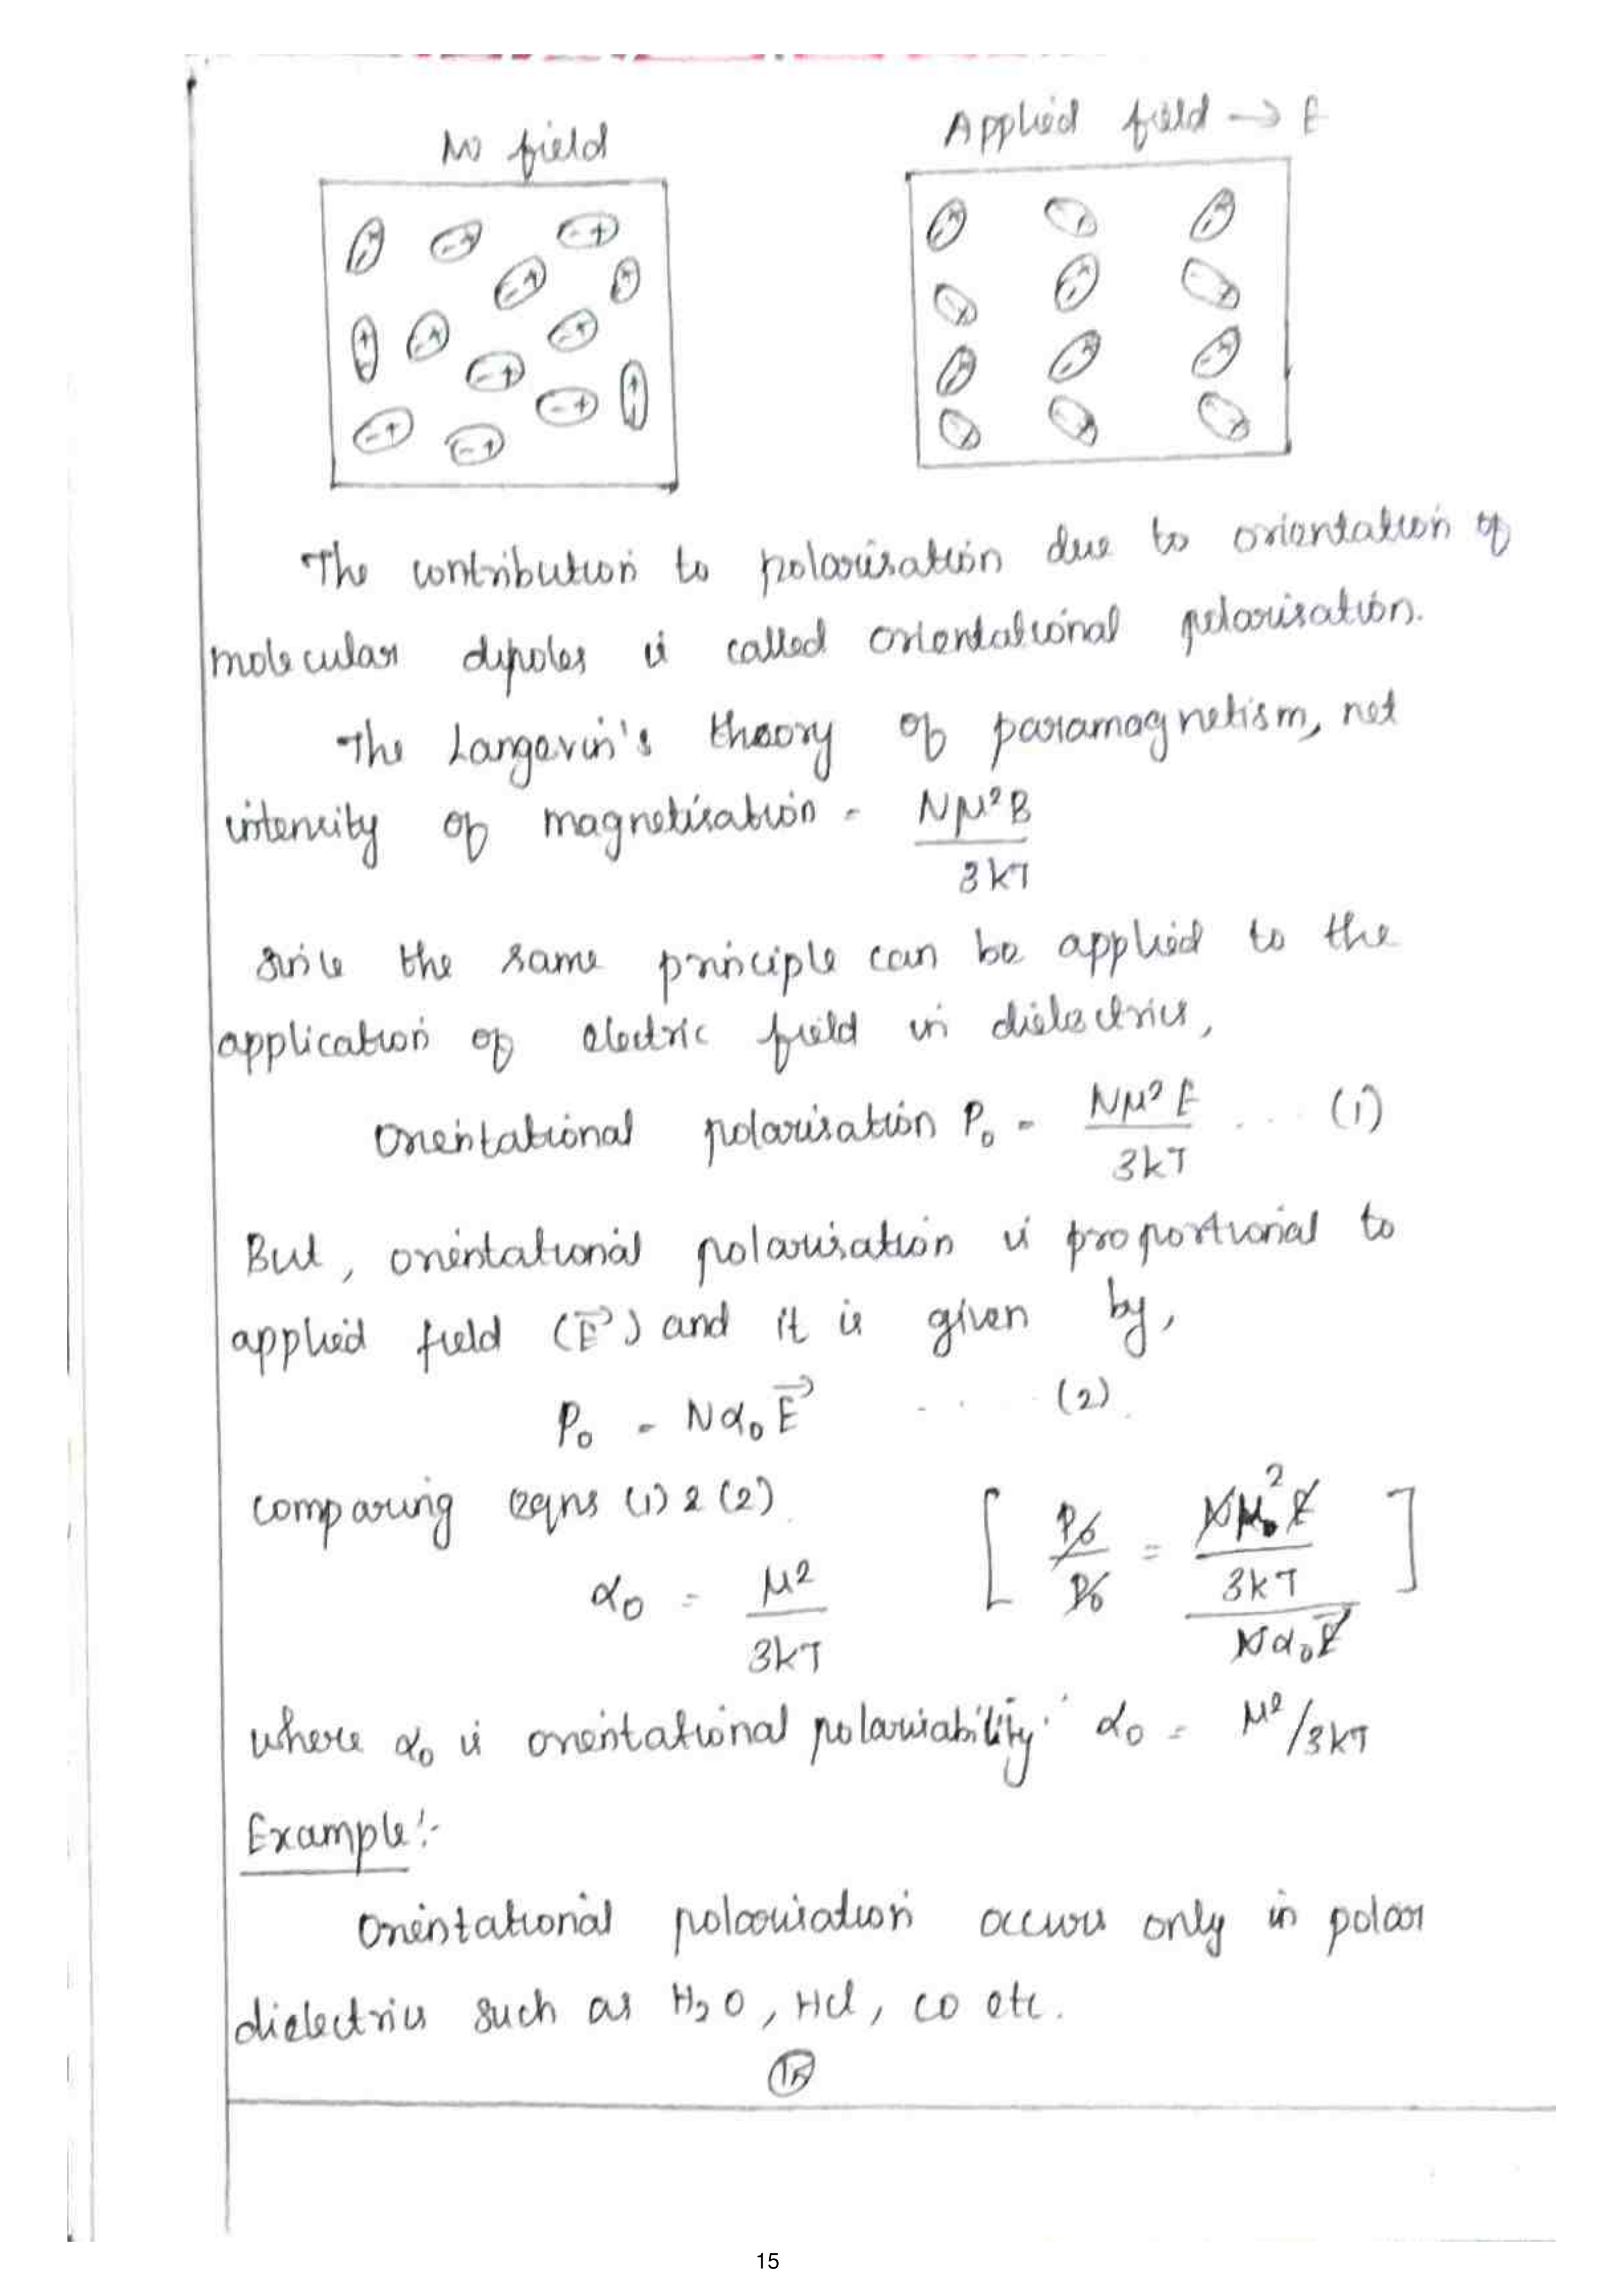 No field
Applied field → E
The contribution to polarisation due to orientation of
molecular dipoles is called orientational polarisation.
The Langevin's theory of paramagnetism, net
intensity of magnetisation = Nμ²B / 3kT
Since the same principle can be applied to the
application of electric field in dielectrics,
Orientational polarisation P₀ = Nμ²E / 3kT ... (1)
But, orientational polarisation is proportional to
applied field (E⃗) and it is given by,
P₀ = Nα₀E⃗ ... (2)
comparing eqns (1) & (2)
α₀ = μ² / 3kT [ P₀/P₀ = (Nμ²E / 3kT) / Nα₀E⃗ ]
where α₀ is orientational polarisability. α₀ = μ²/3kT
Example:-
Orientational polarisation occurs only in polar
dielectrics such as H₂O, HCl, CO etc.
15
15